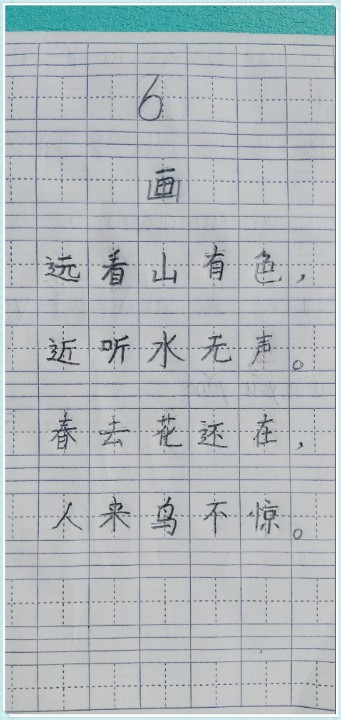 6
画
远看山有色，
近听水无声。
春去花还在，
人来鸟不惊。